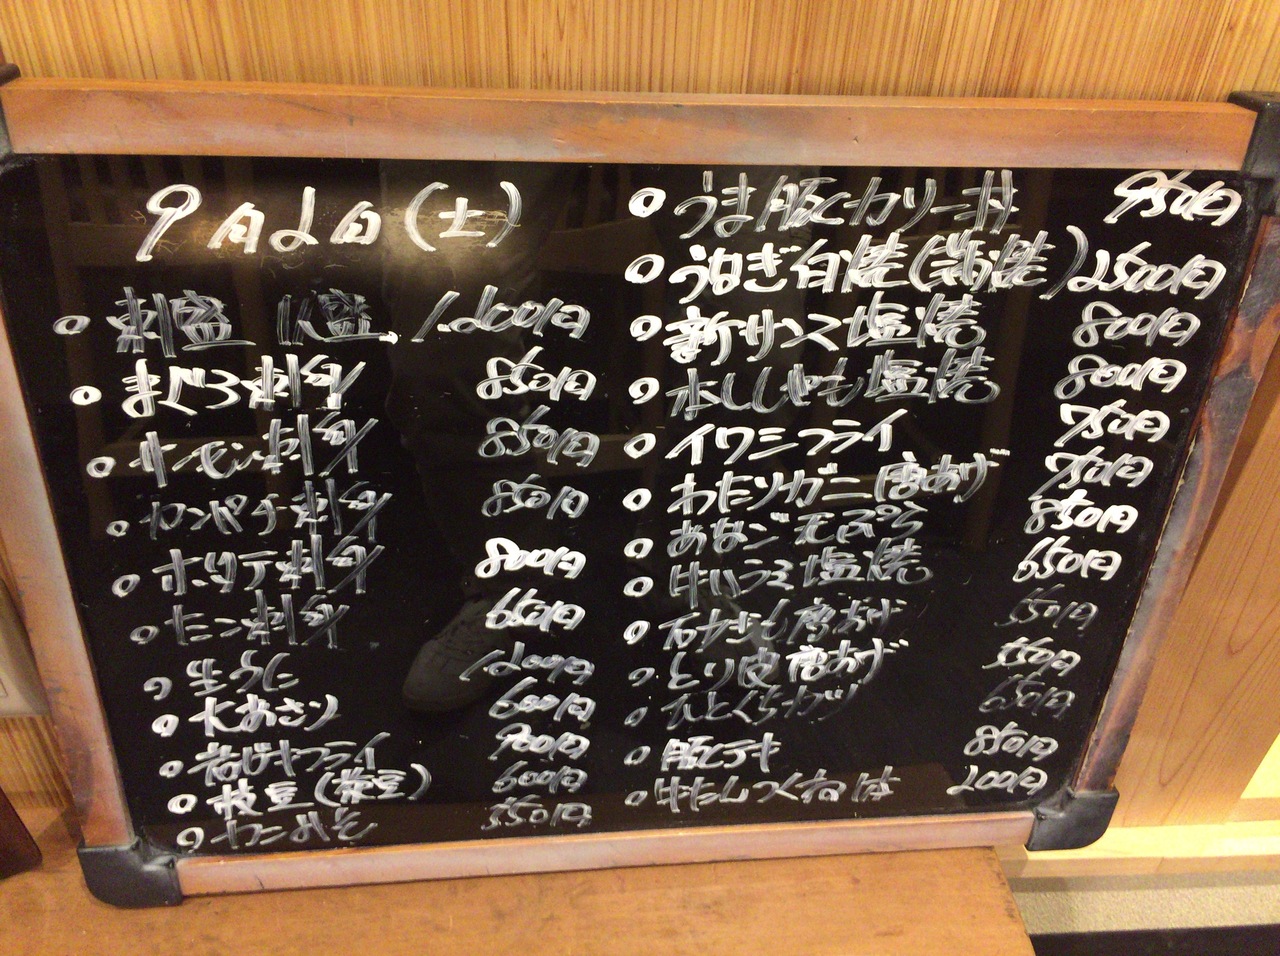 9月2日(土)
刺盛 1,200円
まぐろ刺身 850円
サーモン刺身 850円
カンパチ刺身 850円
ホタテ刺身 800円
たこ刺身 650円
生うに 1200円
大あさり 600円
岩ガキフライ 900円
枝豆(茶豆) 600円
カニみそ 550円
うま豚ヒカツ丼 950円
うなぎ白焼(蒲焼) 2500円
新サンマ塩焼 800円
本ししゃも塩焼 800円
イワシフライ 750円
わたりガニ唐あげ 750円
あなご天ぷら 850円
塩焼 650円
唐あげ 550円
とり皮唐あげ 550円
ひとくちカツ 650円
豚ヒテキ 850円
つくね 200円